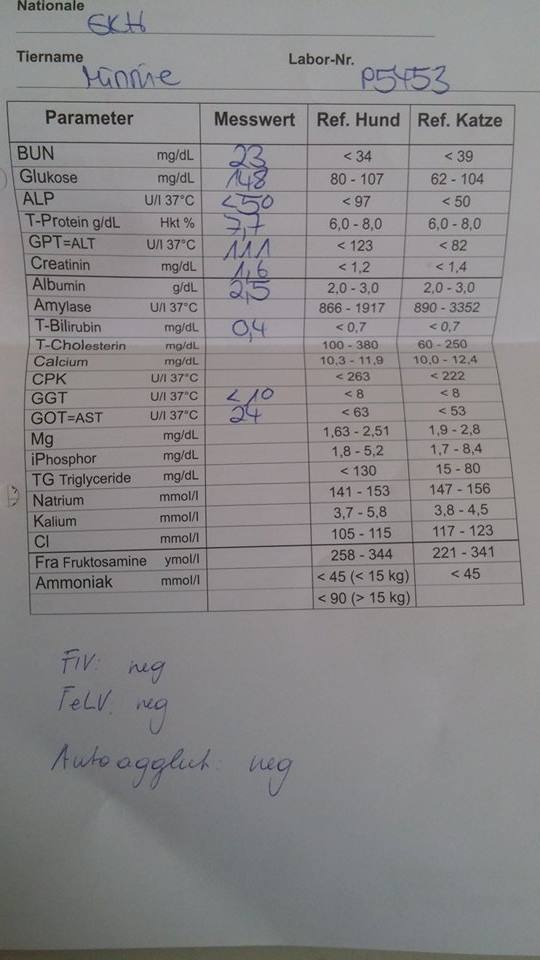 Nationale
EKH
Tiername Minnie Labor-Nr. P5453
Parameter Messwert Ref. Hund Ref. Katze
BUN mg/dL 23 < 34 < 39
Glukose mg/dL 148 80 - 107 62 - 104
ALP U/l 37°C <50 < 97 < 50
T-Protein g/dL Hkt % 7,7 6,0 - 8,0 6,0 - 8,0
GPT=ALT U/l 37°C 111 < 123 < 82
Creatinin mg/dL 1,6 < 1,2 < 1,4
Albumin g/dL 2,5 2,0 - 3,0 2,0 - 3,0
Amylase U/l 37°C 866 - 1917 890 - 3352
T-Bilirubin mg/dL 0,4 < 0,7 < 0,7
T-Cholesterin mg/dL 100 - 380 60 - 250
Calcium mg/dL 10,3 - 11,9 10,0 - 12,4
CPK U/l 37°C < 263 < 222
GGT U/l 37°C <10 < 8 < 8
GOT=AST U/l 37°C 24 < 63 < 53
Mg mg/dL 1,63 - 2,51 1,9 - 2,8
iPhosphor mg/dL 1,8 - 5,2 1,7 - 8,4
TG Triglyceride mg/dL < 130 15 - 80
Natrium mmol/l 141 - 153 147 - 156
Kalium mmol/l 3,7 - 5,8 3,8 - 4,5
Cl mmol/l 105 - 115 117 - 123
Fra Fruktosamine ymol/l 258 - 344 221 - 341
Ammoniak mmol/l < 45 (< 15 kg) < 45
< 90 (> 15 kg)
FIV: neg
FeLV: neg
Autoagglut: neg